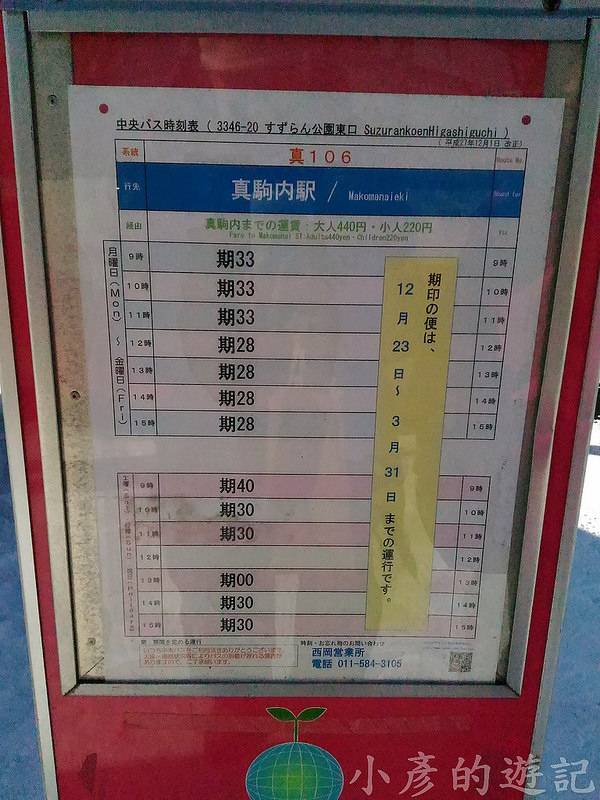 中央バス時刻表 ( 3346-20 すずらん公園東口 SuzurankoenHigashiguchi )
( 平成27年12月1日 改正)
系統 真106 Route No
行先 真駒内駅 / Makomanaieki Bound for
経由 真駒内までの運賃:大人440円・小人220円 Via
Fare to Makomanai ST Adults440yen・Children220yen
月曜日(Mon) ~ 金曜日(Fri)
9時 期33 9時
10時 期33 10時
11時 期33 11時
12時 期28 12時
13時 期28 13時
14時 期28 14時
15時 期28 15時
期印の便は、
12月23日~3月31日までの運行です。
9時 期40 9時
10時 期30 10時
11時 期30 11時
12時 12時
13時 期00 13時
14時 期30 14時
15時 期30 15時
期:期間を定める運行
いつも中央バスをご利用頂きありがとうございます。
ありますので、ご了承願います。
時刻・お忘れ物のお問い合わせ
西岡営業所
電話 011-584-3105
小彥的遊記